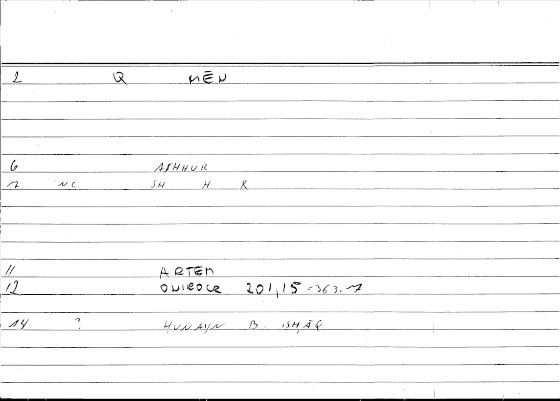 2 Q MĒN
6 ASHHUR
7 NC SH H R
11 ARTEM
12 ONIROCR 201,15 = 363.7
14 ? ḤUNAYN B. ISḤĀQ